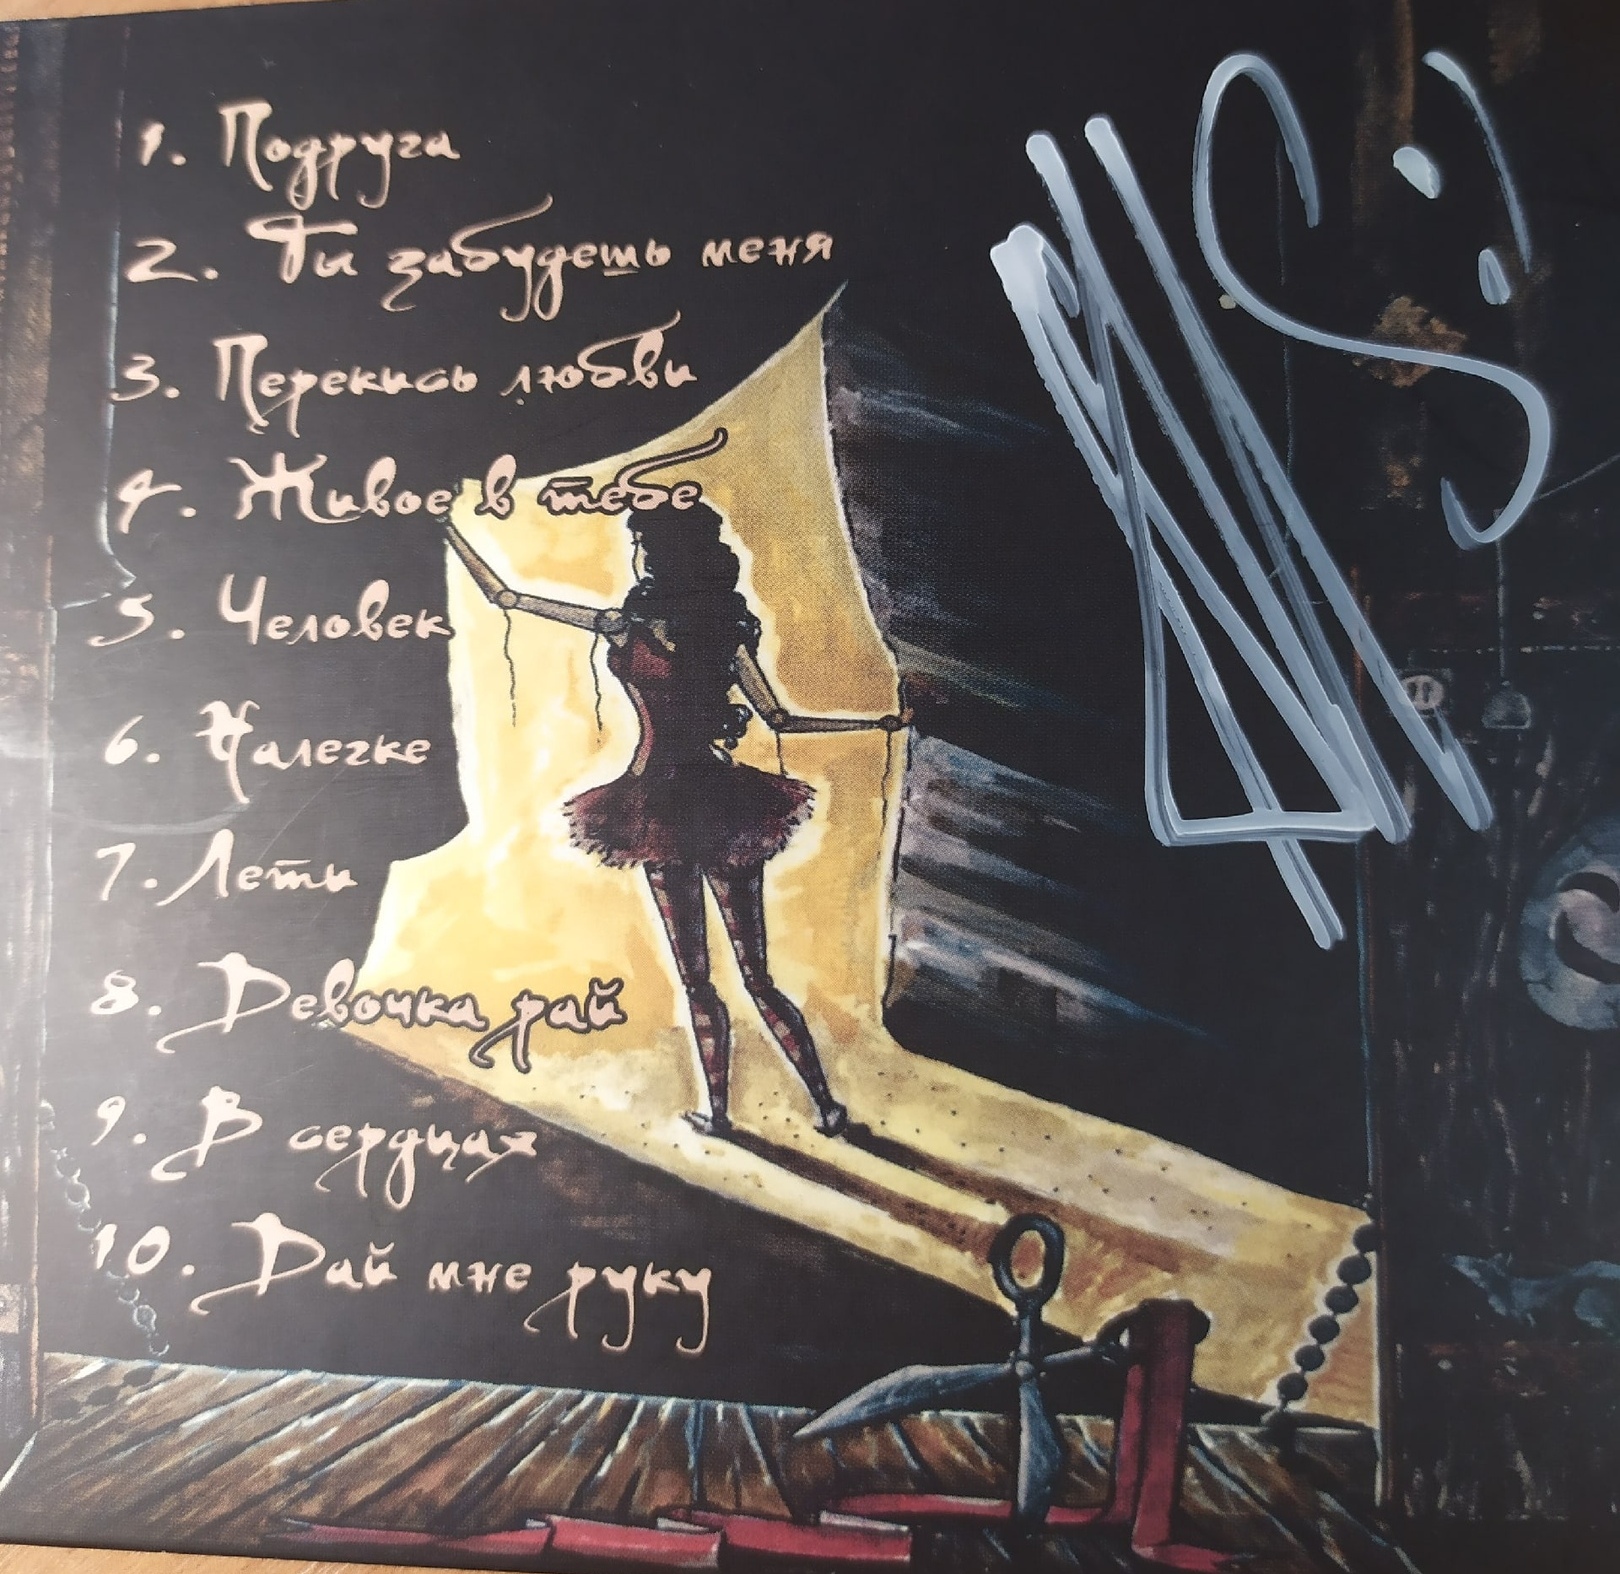 1. Подруга
2. Ты забудешь меня
3. Перекись любви
4. Живое в тебе
5. Человек
6. Налегке
7. Лети
8. Девочка рай
9. В сердцах
10. Дай мне руку